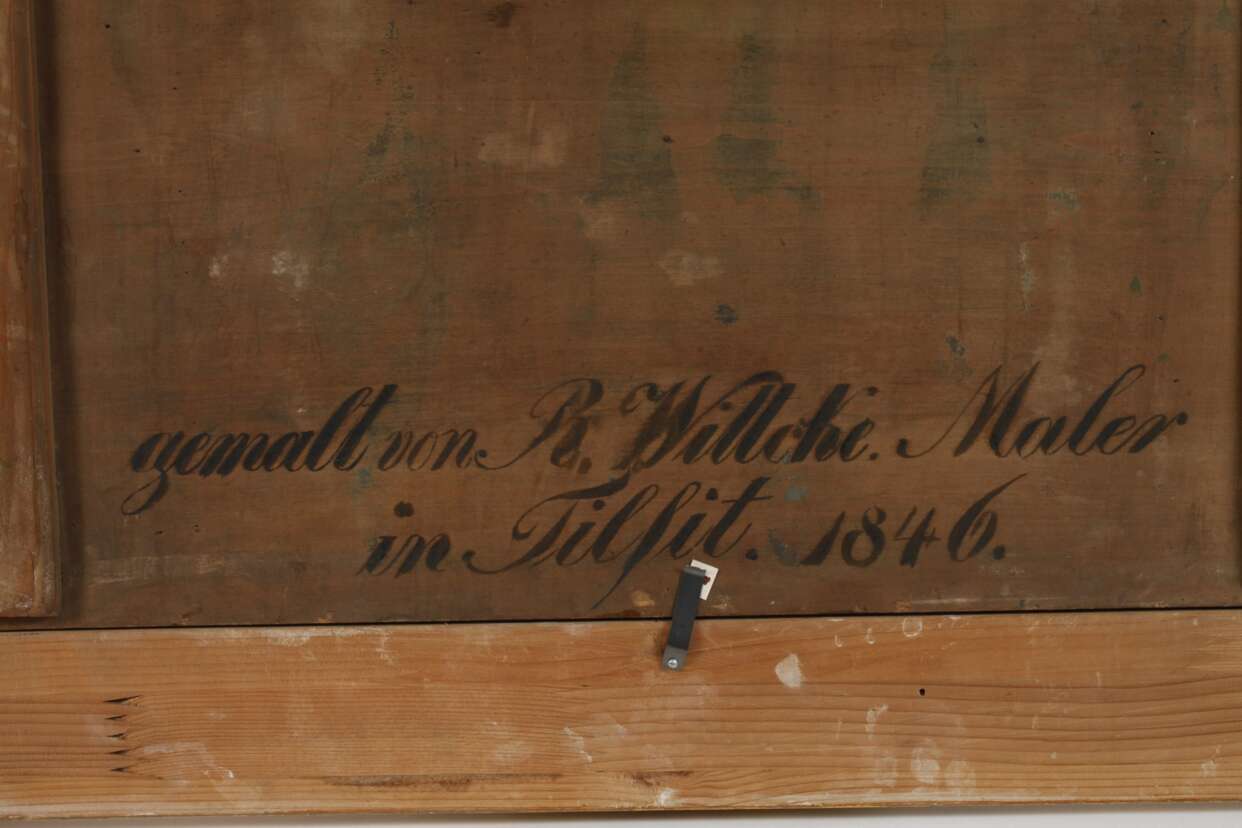 gemalt von R. Wittcke. Maler
in Tilſit. 1846.